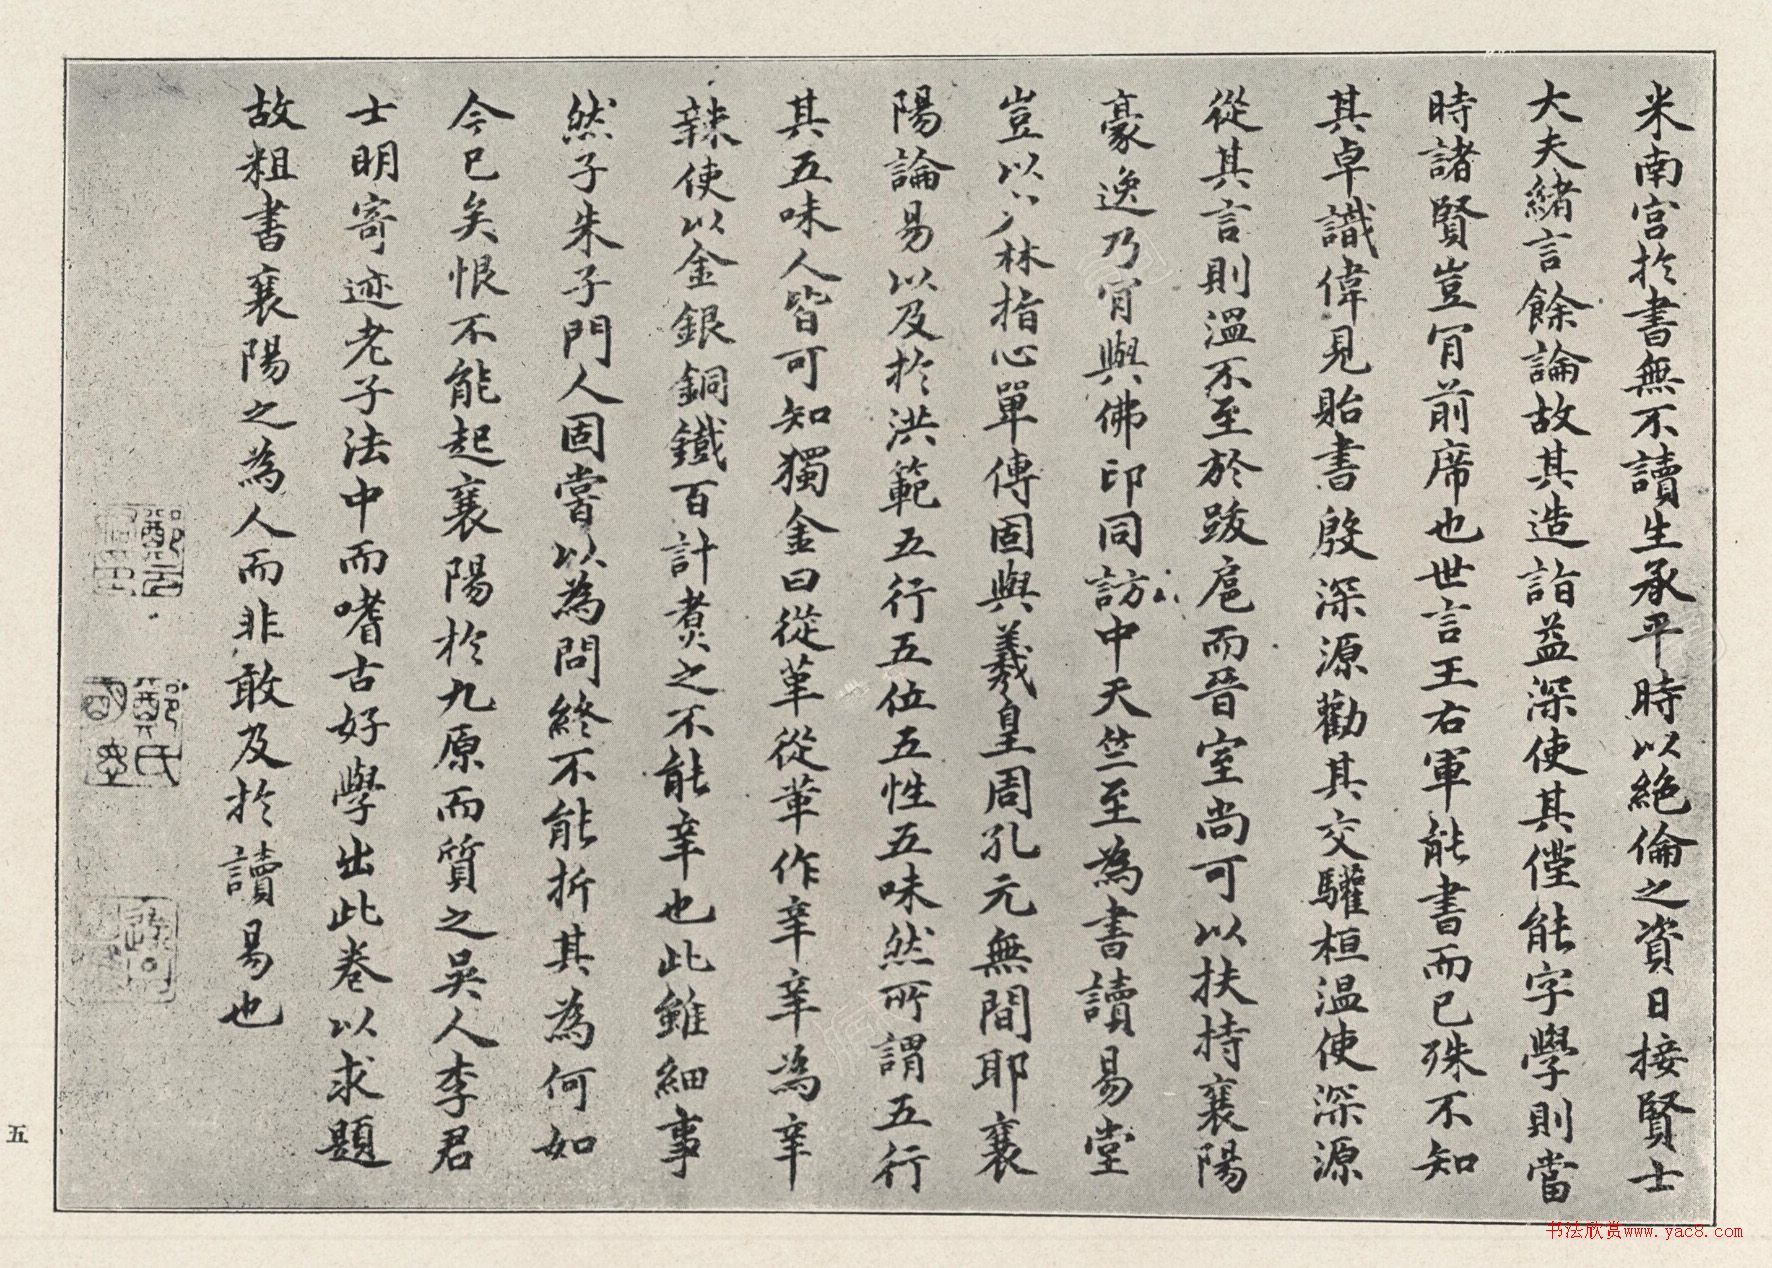 米南宮於書無不讀生承平時以絕倫之資日接賢士
大夫緒言餘論故其造詣益深使其僅能字學則當
時諸賢豈肎前席也世言王右軍能書而已殊不知
其卓識偉見貽書殷深源勸其交驩桓温使深源
從其言則溫不至於跋扈而晉室尚可以扶持襄陽
豪逸乃肎與佛印同訪中天竺至為書讀易堂
豈以少林指心單傳固與羲皇周孔元無間耶襄
陽論易以及於洪範五行五位五性五味然所謂五行
其五味人皆可知獨金曰從革從革作辛辛為辛
辣使以金銀銅鐵百計煑之不能辛也此雖細事
然子朱子門人固嘗以為問終不能折其為何如
今已矣恨不能起襄陽於九原而質之吳人李君
士明寄迹老子法中而嗜古好學出此卷以求題
故粗書襄陽之為人而非敢及於讀易也
鄭氏
明德
五
书法欣赏www.yac8.com